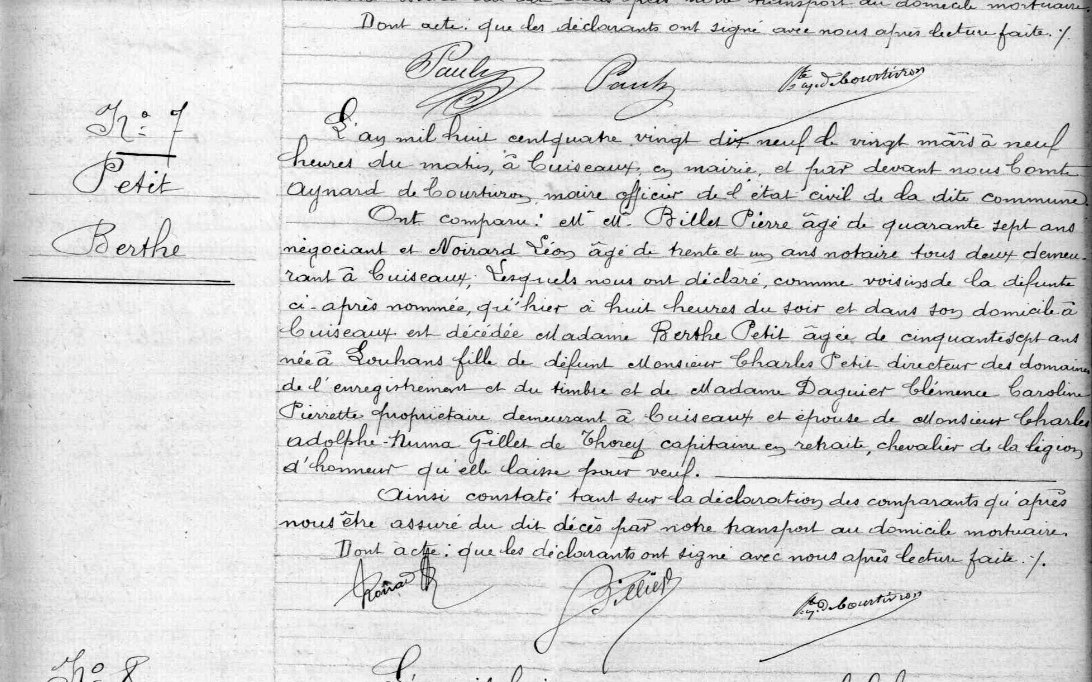 transport au domicile mortuaire.
Dont acte : que les déclarants ont signé avec nous après lecture faite ./.
Pauly Pauly Cte Ay. de Courtivron
No 7
Petit
Berthe
L'an mil huit cent quatre vingt dix neuf le vingt mars à neuf
heures du matin, à Cuiseaux, en mairie, et par devant nous Comte
Aynard de Courtivron, maire officier de l'état civil de la dite commune
Ont comparu : MM. Billet Pierre âgé de quarante sept ans
négociant et Noirard Léon âgé de trente et un ans notaire tous deux demeu-
rant à Cuiseaux, Lesquels nous ont déclaré, comme voisins de la défunte
ci-après nommée, qu'hier à huit heures du soir et dans son domicile à
Cuiseaux est décédée Madame Berthe Petit âgée de cinquante sept ans
née à Louhans fille de défunt Monsieur Charles Petit directeur des domaines
de l'enregistrement et du timbre et de Madame Daguier Clémence Caroline
Pierrette propriétaire demeurant à Cuiseaux et épouse de Monsieur Charles
Adolphe-Numa Gillet de Thorey capitaine en retraite, chevalier de la légion
d'honneur qu'elle laisse pour veuf.
Ainsi constaté tant sur la déclaration des comparants qu'après
nous être assuré du dit décès par notre transport au domicile mortuaire.
Dont acte : que les déclarants ont signé avec nous après lecture faite ./.
Noirard Billet Cte Ay. de Courtivron
No 8